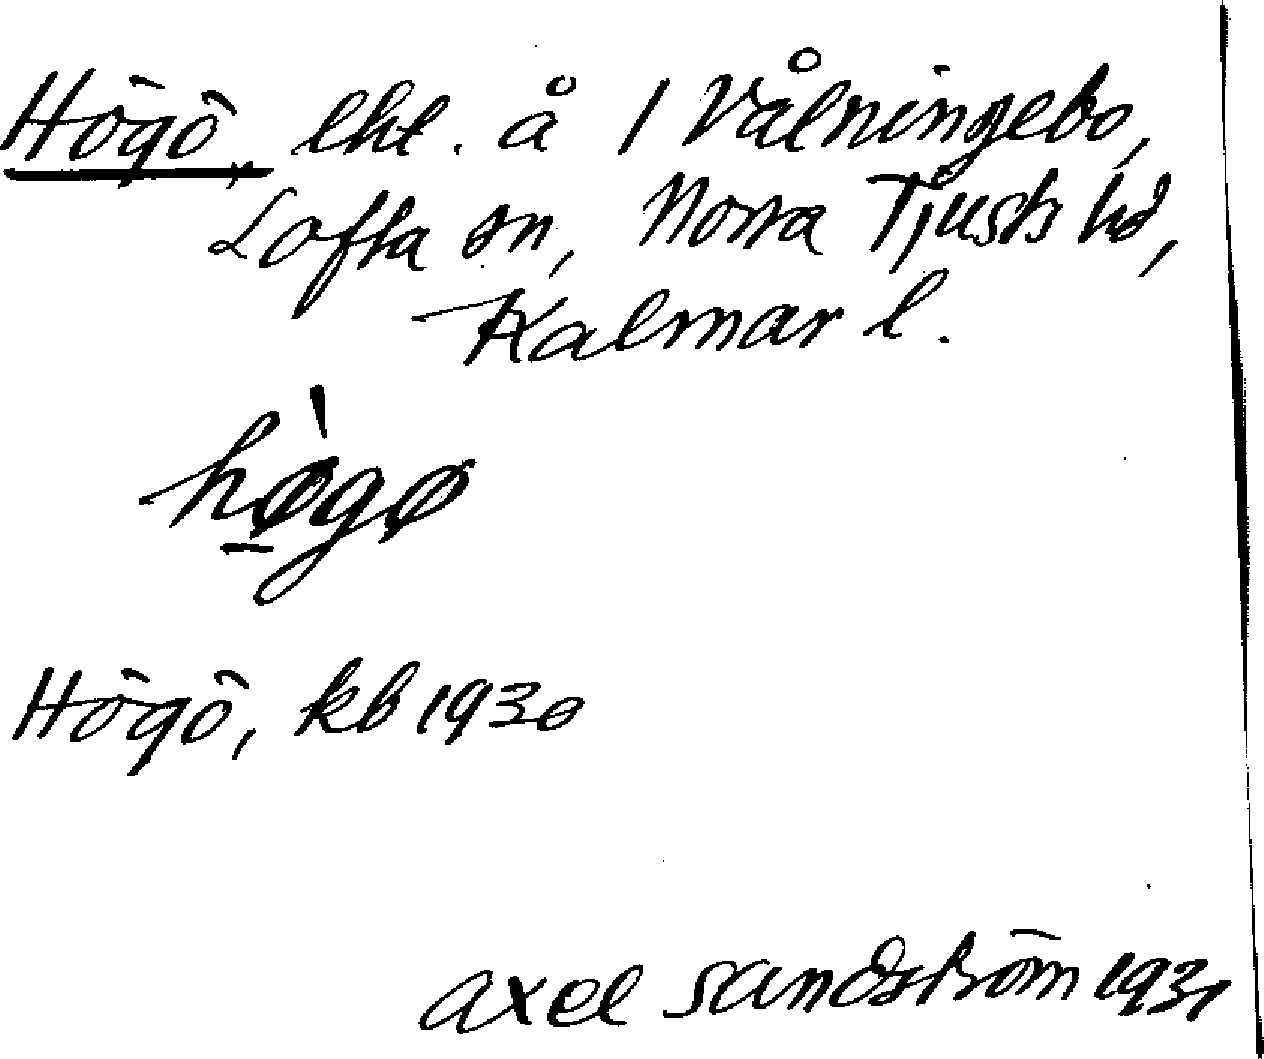 Högö, lht. å 1 Vålningebo,
Lofta sn, Norra Tjusts hd,
Kalmar l.
hø̀gø
Högö, kb 1930
Axel Sandström 1931